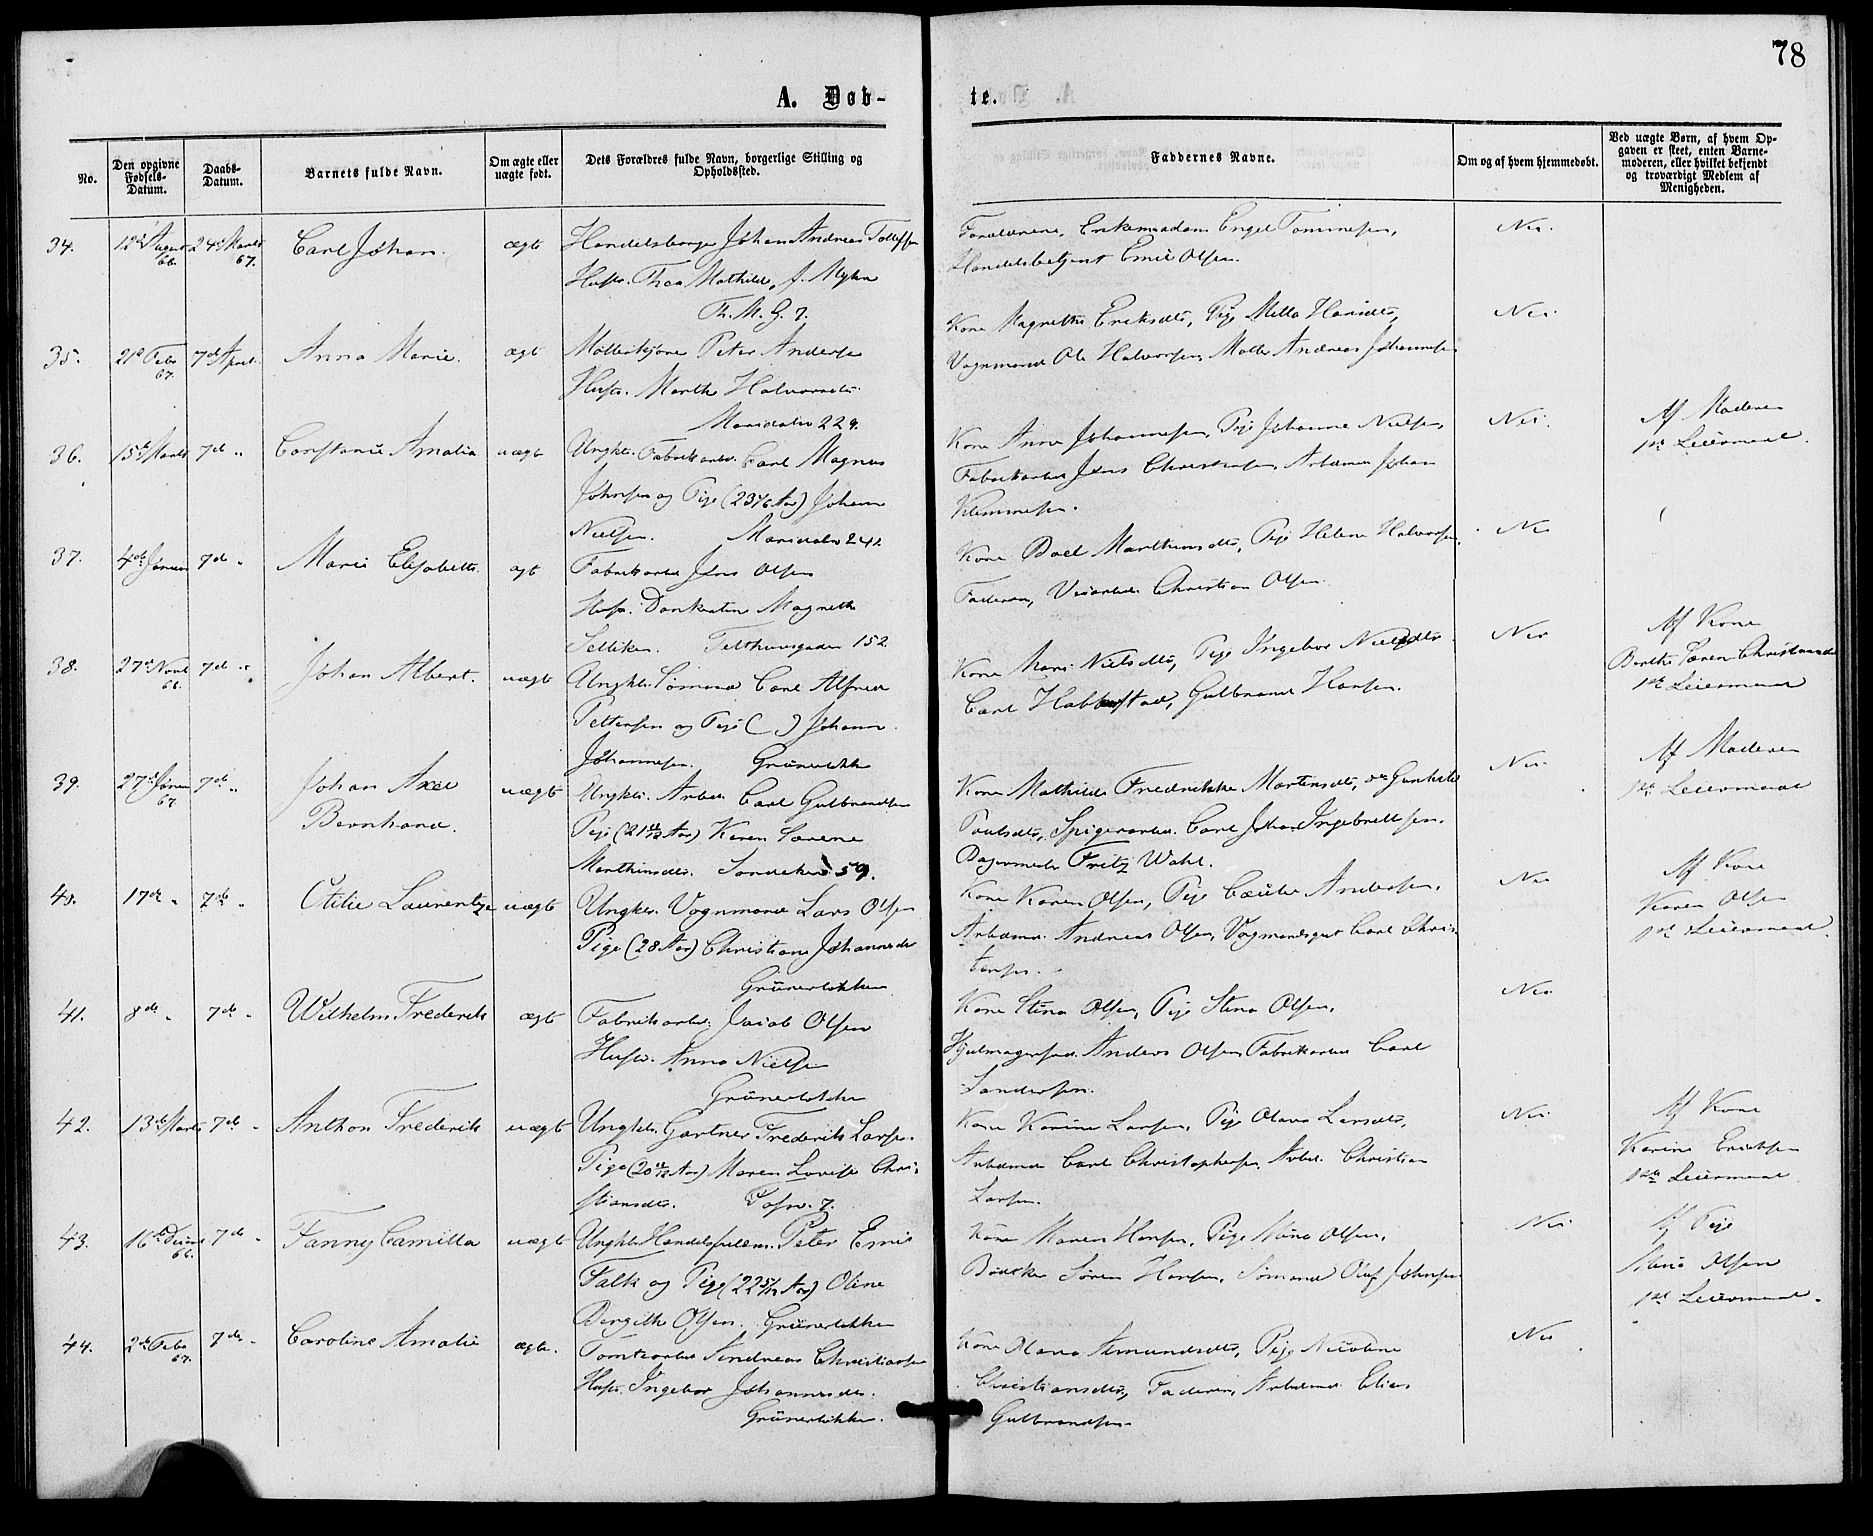 78
A. Døb-
te.
No.
Den opgivne Fødsels-Datum.
Daabs-Datum.
Barnets fulde Navn.
Om ægte eller uægte født.
Dets Forældres fulde Navn, borgerlige Stilling og Opholdssted.
Faddernes Navne.
Om og af hvem hjemmedøbt.
Ved uægte Børn, af hvem Opgaven er skeet, enten Barnemoderen, eller hvilket bekjendt og troværdigt Medlem af Menigheden.
34. 12te August 66. 24de Marts 67. Carl Johan. ægte Handelsborger Johan Andreas Tollefsen
Hustr. Thea Mathilde, f. Myhre
Th. M. G. 7.
Forældrene, Enkemadam Engel Tommesen,
Handelsbetjent Emil Olsen.
Nei.
35. 21de Febr 67. 7de April. Anna Marie. ægte Møllerkjører Peter Andersen
Hustr. Marthe Halvorsdtr.
Maridalsv 229.
Kone Magrethe Eriksdtr, Pige Mella Hansdtr,
Vognmand Ole Halvorsen, Møller Andreas Johannesen
Nei.
36. 15de Marts 7de " Constance Amalia uægte Ungkl. Fabrikarb. Carl Magnus
Johnsen og Pige (23 4/6 Aar) Johanne
Nielsen. Maridalsv 242
Kone Anne Johannesen, Pige Johanne Nielsen,
Fabrikarbei Jens Christensen, Arbmd Johan
Klemmesen.
Nei.
Af Moderen
1ste Leiermaal.
37. 4de Januar 7de " Marie Elisabeth. ægte Fabrikarbei Jens Olsen
Hustr. Dankertine Magrethe
Selliken. Telthusgaden 152
Kone Boel Marthinsdtr, Pige Helene Halvorsen,
Faderen, Christian Olsen.
Nei
38. 27de Novbr 66. 7de " Johan Albert. uægte Ungkl. Sømand Carl Alfred
Pettersen og Pige ( ) Johanne
Johannesen. Grünerløkken
Kone Mari Nielsdtr, Pige Ingebor Nielsdtr.
Carl Habberstad, Gulbrand Hansen.
Nei
Af Kone
Berthe Karen Christiansdtr
1ste Leiermaal
39. 27de Januar 67. 7de " Johan Axel
Bernhard. uægte Ungkl. Arbei. Carl Gulbrandsen
Pige (21 Aar) Karen Lovene
Marthinsdtr. Sandakerv 59.
Kone Mathilde Fredrikke Martinsdtr, do Gunhild
Poulsdtr, Spigerarbei. Carl Johan Ingebretsen.
Bagermester Fritz Wahl.
Nei.
Af Moderen
1ste Leiermaal
40. 17de " 7de " Otilie Laurentze uægte Ungkl. Vognmand Lars Olsen
Pige (28 Aar) Christiane Johannesdtr
Grünerløkken
Kone Karen Olsen, Pige Cæcilie Andersen.
Arbdmd. Andreas Olsen, Vognmandsgut Carl Chris-
tensen.
Nei
Af Kone
Karen Olsen
1ste Leiermaal.
41. 8de " 7de " Wilhelm Frederik ægte Fabrikarbei. Jacob Olsen
Hustr. Anna Nielsen
Grünerløkken
Kone Stina Olsen, Pige Stina Olsen,
Hjulmagersvd. Anders Olsen, Fabrikarbei Carl
Sandersen.
Nei.
42. 13de Marts 7de " Anthon Frederik uægte Ungkl. Gartner Frederik Larsen.
Pige (20 Aar) Maren Lovise Chri-
stiansdtr. Tofsv. 7.
Kone Karine Larsen, Pige Olava Larsdtr,
Arbdmd Carl Christophersen, Arbei. Christian
Larsen.
Nei.
Af Kone
Karine Eriksen
1ste Leiermaal
43. 16de Decbr 66. 7de " Fanny Camilla uægte Ungkl. Handelsfuldm. Peter Emil
Falk og Pige (22 5/12 Aar) Oline
Bergithe Olsen. Grünerløkken
Kone Maren Hansen, Pige Mina Olsen,
Bødker Søren Hansen, Sømand Oluf Johnsen
Nei.
Af Pige
Mina Olsen
1ste Leiermaal.
44. 2de Febr 67. 7de " Caroline Amalie ægte. Tomtearbei Andreas Christiansen
Hustr. Ingebor Johannesdtr.
Grünerløkken.
Kone Maria Amundsdtr, Pige Nicoline
Christiansdtr, Faderen, Arbdmd. Elias
Gulbrandsen.
Nei